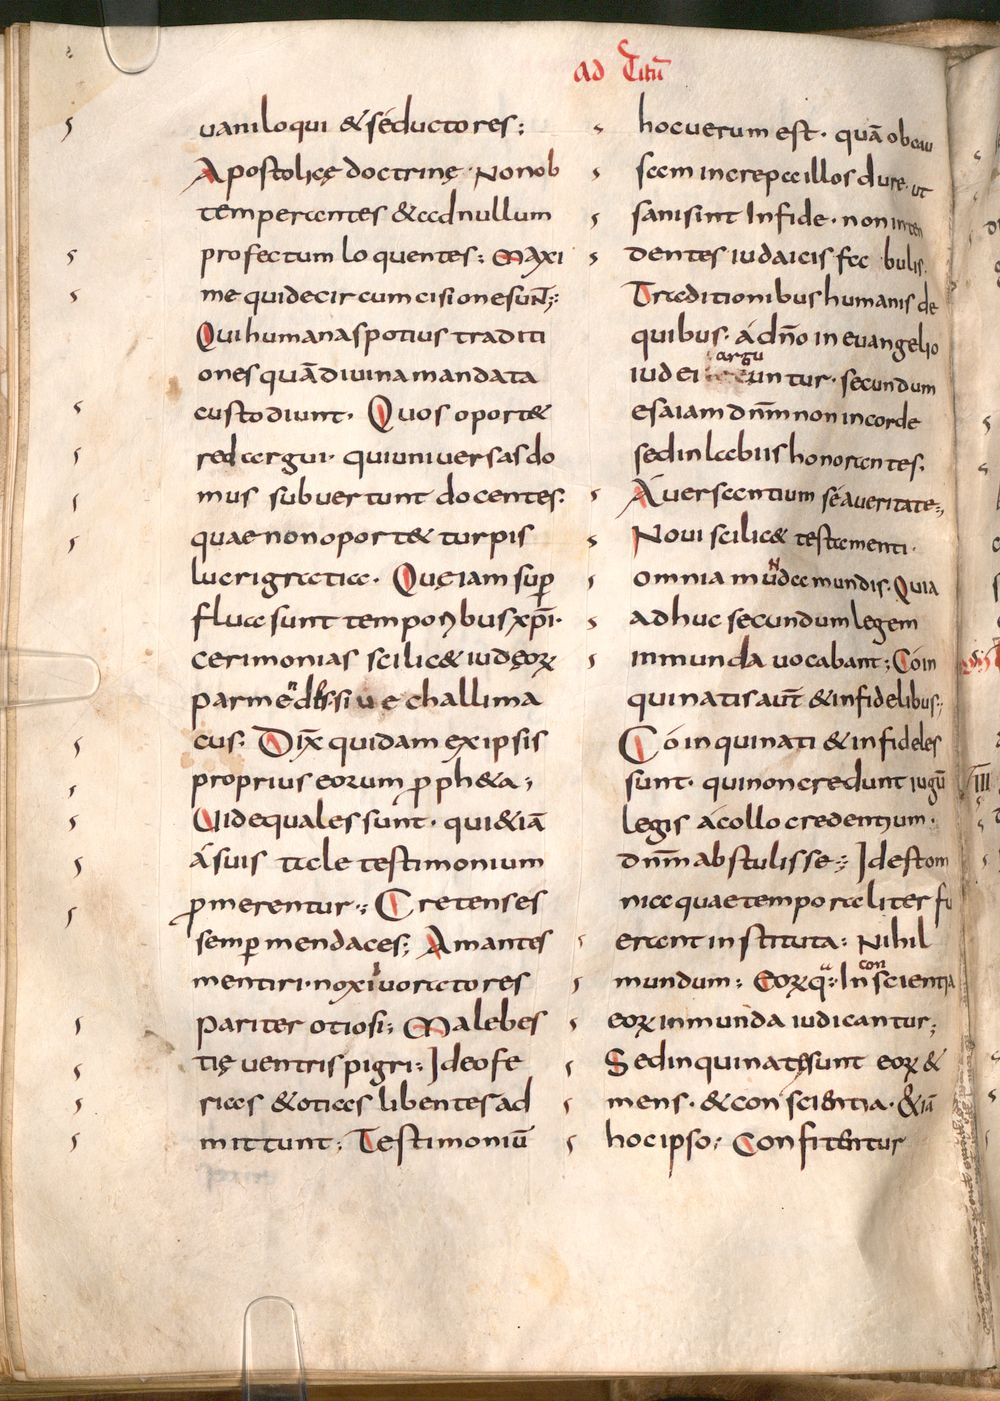 ad Titū
uaniloqui & seductores;
Apostolicę doctrinę. Non ob
temperantes & ad nullum
profectum loquentes; Maxi
me qui de circumcisione suÑ;
Qui humanas potius traditi
ones quā diuina mandata
custodiunt. Quos oport&
redargui. qui uniuersas do
mus subuertunt docentes.
quae non oport& turpis
lucri gratia. Quę iam sup
flua sunt temporibus xp̄i.
cerimonias scilic& iudęoꝝ
siue challima
cus. Dix̄ quidam ex ipsis
proprius eorum ꝓph&a;
Uide quales sunt. qui &iā
á suis tale testimonium
ꝓmerentur; Cretenses
semꝑ mendaces; Amantes
mentiri. noxi uoratores
pariter otiosi; Malę bes
tię uentris pigri; Ideo fe
rias & otias libentes ad
mittunt; Testimoniū
hoc uerum est. quā ob cau
sam increpa illos dure. ut
sani sint In fide. non inten
dentes iudaicis fa bulis.
Traditionibus humanis de
quibus. á dn̄o in euangelio
iudei arguuntur. secundum
esaiam dn̄m non in corde
sed in labiis honorantes.
Áuersantium sé a ueritate;
Noui scilic& testamenti.
omnia mūda mundis. Quia
adhuc secundum legem
inmunda uocabant; Cóin
quinatis aut̄ & infidelibus;
Cóinquinati & infideles
sunt. qui non credunt iugū
legis á collo credentium.
dn̄m abstulisse; Id est om
nia quae temporaliter fu
erant instituta: Nihil
mundum; Eoꝝ q; In conscientia
eoꝝ inmunda iudicantur;
Sed inquinatę sunt eoꝝ &
mens. & conscientia. &iā
hoc ipso; Confitentur